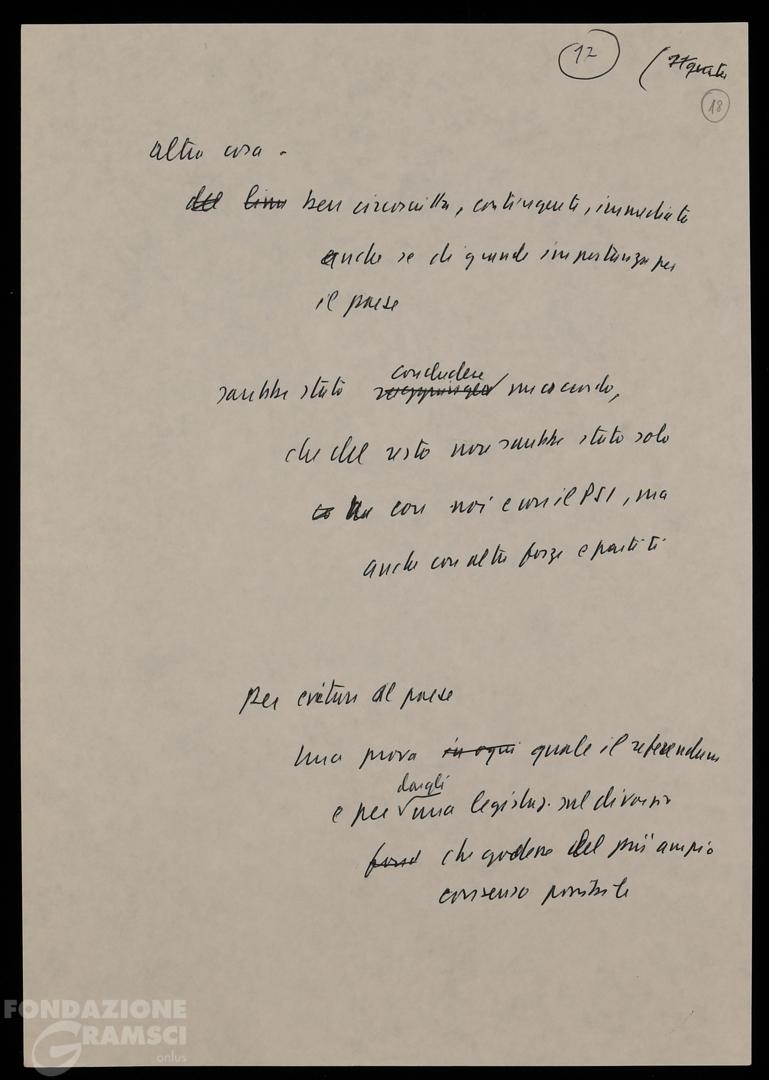 12
18
altra cosa -
del ben circoscritta, contingente, immediata
anche se di grande importanza per
il paese
concludere
sarebbe stato raggiungere un accordo,
che del resto non sarebbe stato solo
con noi e con il PSI, ma
anche con altre forze e partiti
per evitare al paese
una prova in ogni quale il referendum
dargli
e per una legislaz. sul divorzio
che godesse del più ampio
consenso possibile
FONDAZIONE
GRAMSCI
onlus